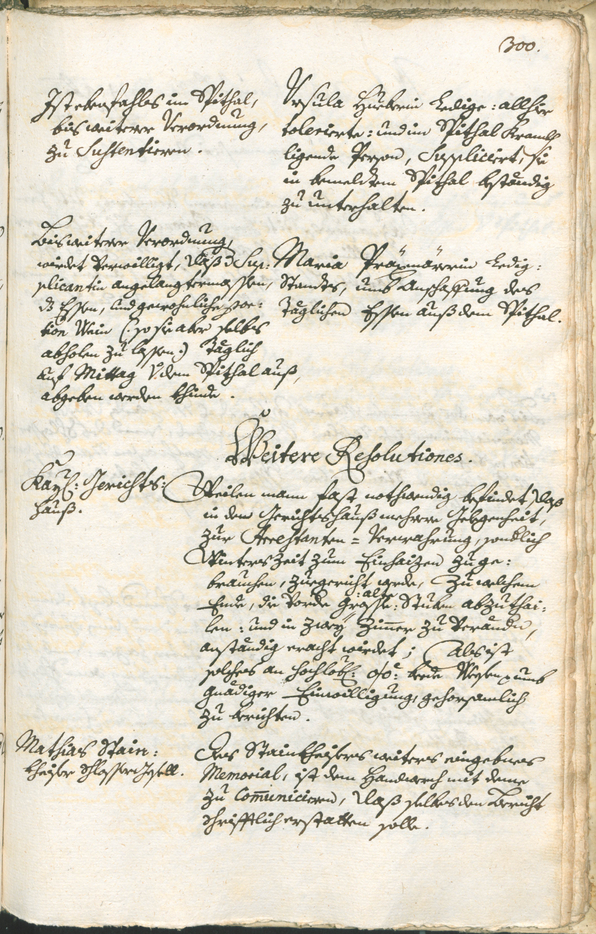 300.
Ist ebenfahls im Spithal,
bis weitere Verordnung,
zu Sustentieren.
Ursula Hueberin Ledige: allhir
tolerierte: und im Spithal Kranckh
ligende Person, Suppliciert, Sie
in bemeldtem Spithal beständig
zu unterhalten.
Bis weitere Verordnung,
wirdet verwilligt, daß der Sup:
plicantin angelangtermassen,
dz Essen, und gewohnliche por:
tion Wein (: so sie aber selbes
abholen zu lassen :) Täglich
auf Mittag v. dem Spithal auß,
abgeben werden khinde.
Maria Präxmärerin Ledig:
Standts, umb Anschaffung des
Täglichen Essen auß dem Spithal.
Weitere Resolutiones.
Kay: Gerichts:
hauß.
Weilen mann fast nothwendig befindet, daß
in dem Gerichtshauß mehrere Gelegenheit,
zur Arrestanten = Verwahrung, sonderlich
Winters Zeit zum Einhaizen zu ge:
brauchen, zuegericht werde, Zu welchem
Ende, die vorde grosse: alte Stuben abzuthai:
len: und in zwey Zimer zu verändern,
anständig eracht wirdet; Als ist
solches an hochlobl: o/ö: beede Wesen, umb
gnädiger Einwilligung, gehorsamlich
zu berichten.
Mathias Stain:
kheiser Schlossergsell.
Des Stainkheisers weiters eingebenes
Memorial, ist dem Handwerch mit deme
zu Comunicieren, daß selbes den Bericht
schrifftlich erstatten solle.